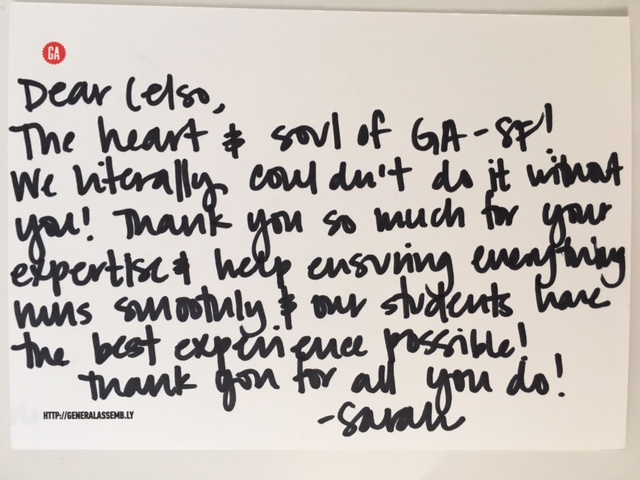 GA
Dear Celso,
The heart & soul of GA-SF!
We literally couldn't do it without
you! Thank you so much for your
expertise & help ensuring everything
runs smoothly & our students have
the best experience possible!
Thank you for all you do!
-Sarah
HTTP://GENERALASSEMB.LY